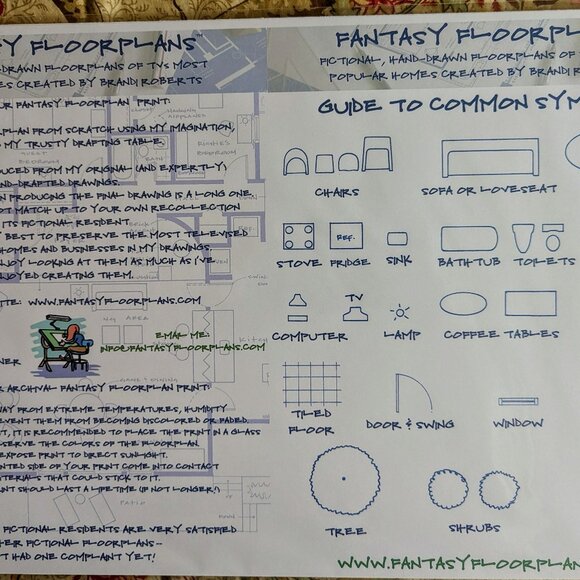 Y FLOORPLANS™
-DRAWN FLOORPLANS OF TV'S MOST
ES CREATED BY BRANDI ROBERTS
UR FANTASY FLOORPLAN PRINT:
PLAN FROM SCRATCH USING MY IMAGINATION,
D MY TRUSTY DRAFTING TABLE.
DUCED FROM MY ORIGINAL (AND EXPERTLY)
ND-DRAFTED DRAWINGS.
IN PRODUCING THE FINAL DRAWING IS A LONG ONE.
OT MATCH UP TO YOUR OWN RECOLLECTION
ITS FICTIONAL RESIDENT.
BEST TO PRESERVE THE MOST TELEVISED
HOMES AND BUSINESSES IN MY DRAWINGS.
NJOY LOOKING AT THEM AS MUCH AS I'VE
ENJOYED CREATING THEM.
ITE: WWW.FANTASYFLOORPLANS.COM
EMAIL ME:
INFO@FANTASYFLOORPLANS.COM
NER
R ARCHIVAL FANTASY FLOORPLAN PRINT:
WAY FROM EXTREME TEMPERATURES, HUMIDITY
EVENT THEM FROM BECOMING DISCOLORED OR FADED.
T, IT IS RECOMMENDED TO PLACE THE PRINT IN A GLASS
ESERVE THE COLORS OF THE FLOORPLAN
EXPOSE PRINT TO DIRECT SUNLIGHT.
NTED SIDE OF YOUR PRINT COME INTO CONTACT
ATERIALS THAT COULD STICK TO IT.
INT SHOULD LAST A LIFETIME (IF NOT LONGER!)
FICTIONAL RESIDENTS ARE VERY SATISFIED
HEIR FICTIONAL FLOORPLANS--
T HAD ONE COMPLAINT YET!
FANTASY FLOORPL
FICTIONAL, HAND-DRAWN FLOORPLANS OF
POPULAR HOMES CREATED BY BRANDI R
GUIDE TO COMMON SYM
CHAIRS
SOFA OR LOVESEAT
REF.
STOVE
FRIDGE
SINK
BATHTUB
TOILETS
TV
COMPUTER
LAMP
COFFEE TABLES
TILED
FLOOR
DOOR & SWING
WINDOW
TREE
SHRUBS
WWW.FANTASYFLOORPL